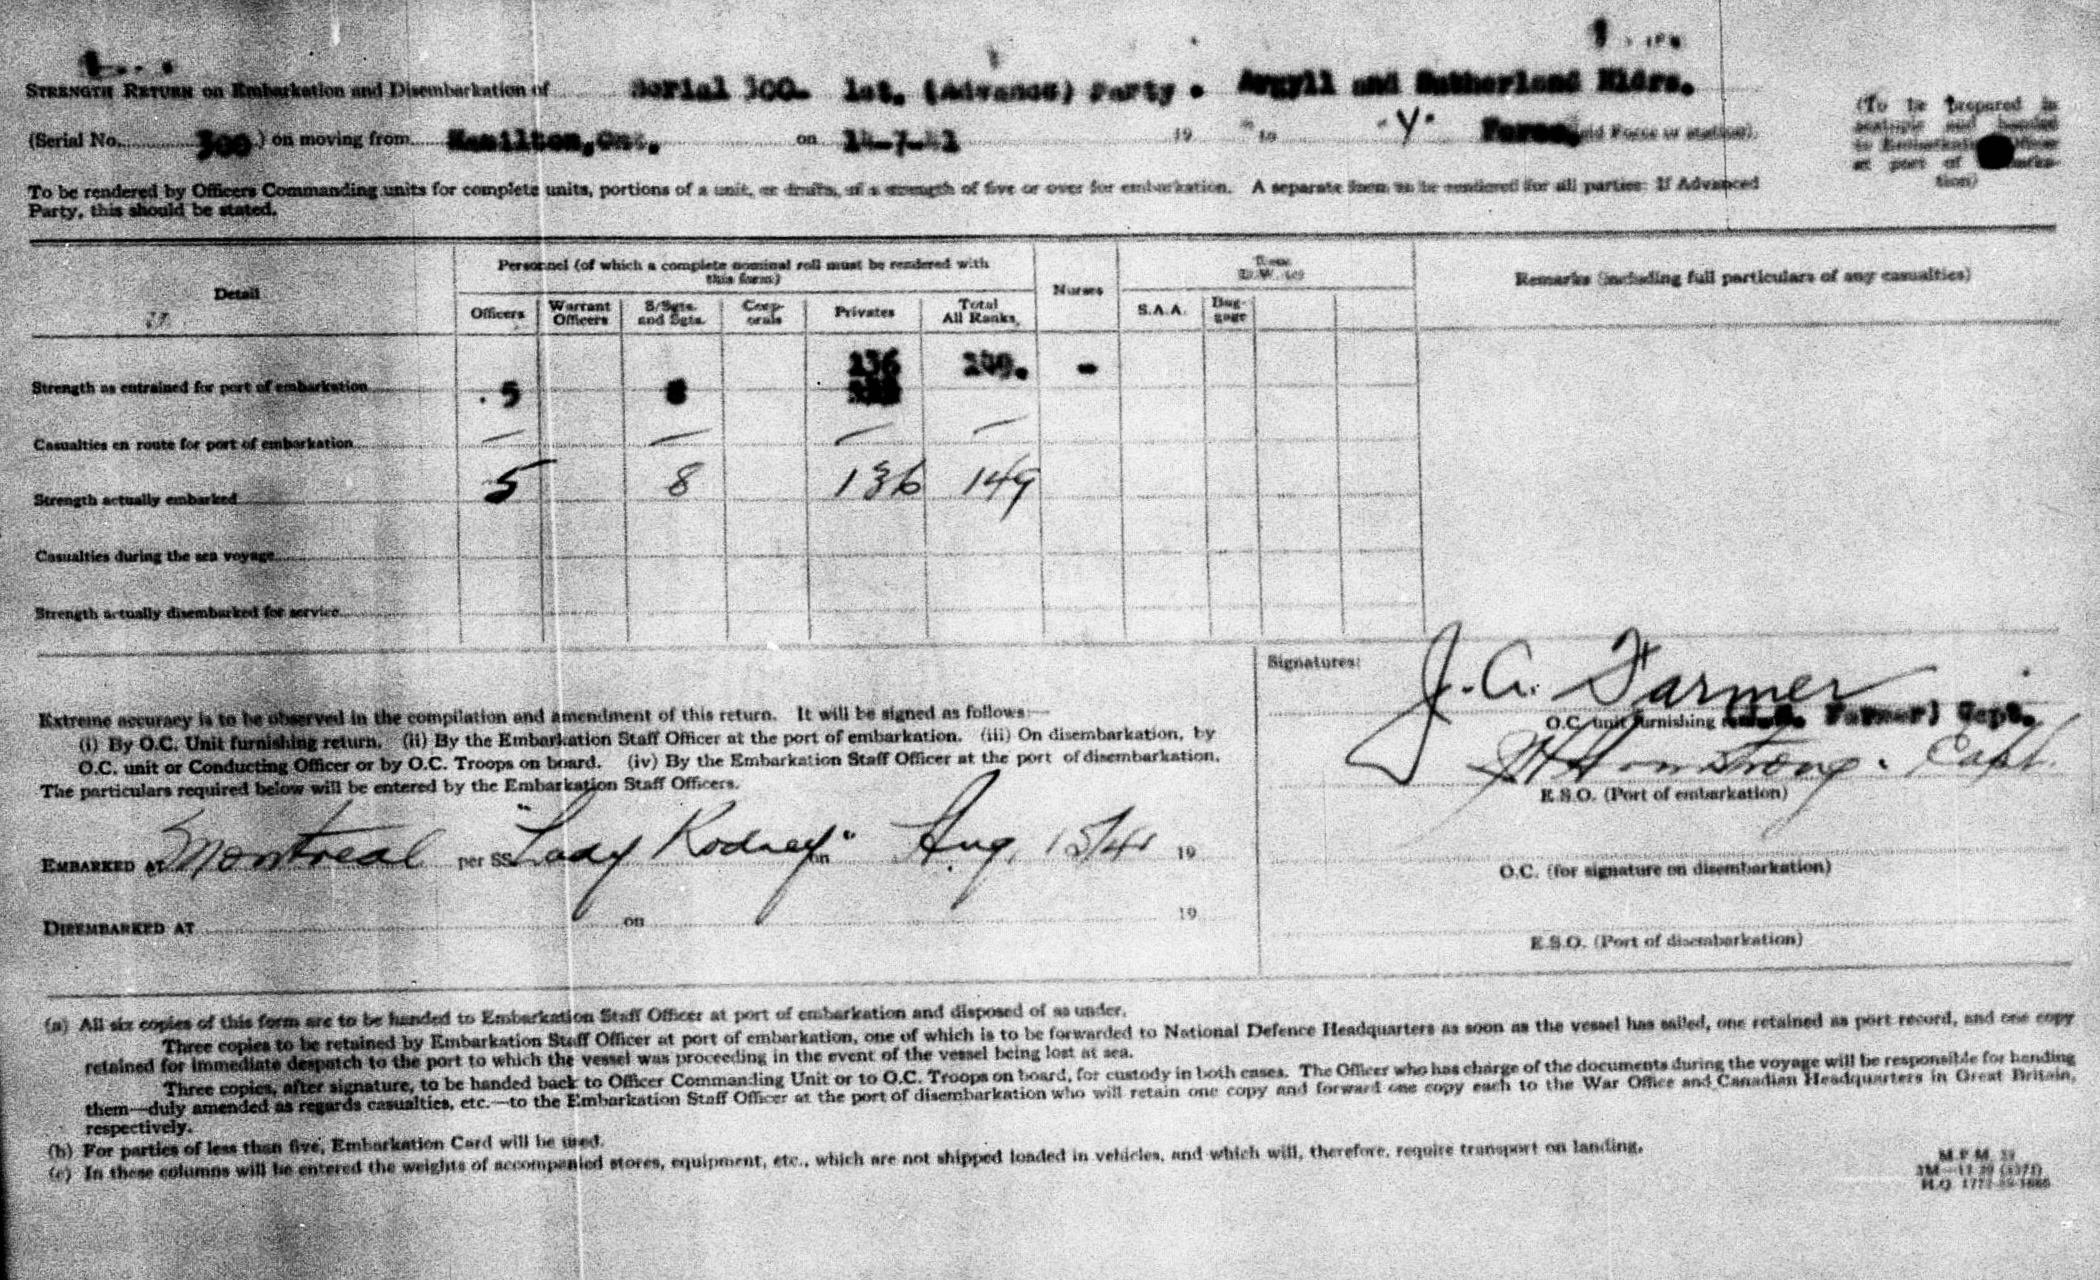 STRENGTH RETURN on Embarkation and Disembarkation of Serial 300. 1st. (Advance) Party. Argyll and Sutherland Hldrs.
(Serial No. 300) on moving from Hamilton, Ont. on 19 to "Y" Force,
(To be prepared in
To be rendered by Officers Commanding units for complete units, portions of a unit, or drafts, of a strength of five or over for embarkation. A separate form to be rendered for all parties: If Advanced
Party, this should be stated.
Detail
Personnel (of which a complete nominal roll must be rendered with
this form)
Nurses
Remarks (including full particulars of any casualties)
Officers Warrant Officers S/Sgts. and Sgts. Corp-orals Privates Total All Ranks S.A.A. Bag-gage
136 149.
Strength as entrained for port of embarkation 5 8 -
Casualties en route for port of embarkation — — — —
Strength actually embarked 5 8 136 149
Casualties during the sea voyage
Strength actually disembarked for service
Signatures:
J. A. Farmer
Extreme accuracy is to be observed in the compilation and amendment of this return. It will be signed as follows:—
O.C. unit furnishing Farmer) Capt.
(i) By O.C. Unit furnishing return. (ii) By the Embarkation Staff Officer at the port of embarkation. (iii) On disembarkation, by
O.C. unit or Conducting Officer or by O.C. Troops on board. (iv) By the Embarkation Staff Officer at the port of disembarkation.
Armstrong. Capt.
The particulars required below will be entered by the Embarkation Staff Officers.
E.S.O. (Port of embarkation)
EMBARKED AT Montreal per SS "Lady Rodney" on Aug 15/41 19
O.C. (for signature on disembarkation)
DISEMBARKED AT on 19
E.S.O. (Port of disembarkation)
(a) All six copies of this form are to be handed to Embarkation Staff Officer at port of embarkation and disposed of as under.
Three copies to be retained by Embarkation Staff Officer at port of embarkation, one of which is to be forwarded to National Defence Headquarters as soon as the vessel has sailed, one retained as port record, and one copy
retained for immediate despatch to the port to which the vessel was proceeding in the event of the vessel being lost at sea.
Three copies, after signature, to be handed back to Officer Commanding Unit or to O.C. Troops on board, for custody in both cases. The Officer who has charge of the documents during the voyage will be responsible for handing
them—duly amended as regards casualties, etc.—to the Embarkation Staff Officer at the port of disembarkation who will retain one copy and forward one copy each to the War Office and Canadian Headquarters in Great Britain,
respectively.
(b) For parties of less than five, Embarkation Card will be used.
(c) In these columns will be entered the weights of accompanied stores, equipment, etc., which are not shipped loaded in vehicles, and which will, therefore, require transport on landing.